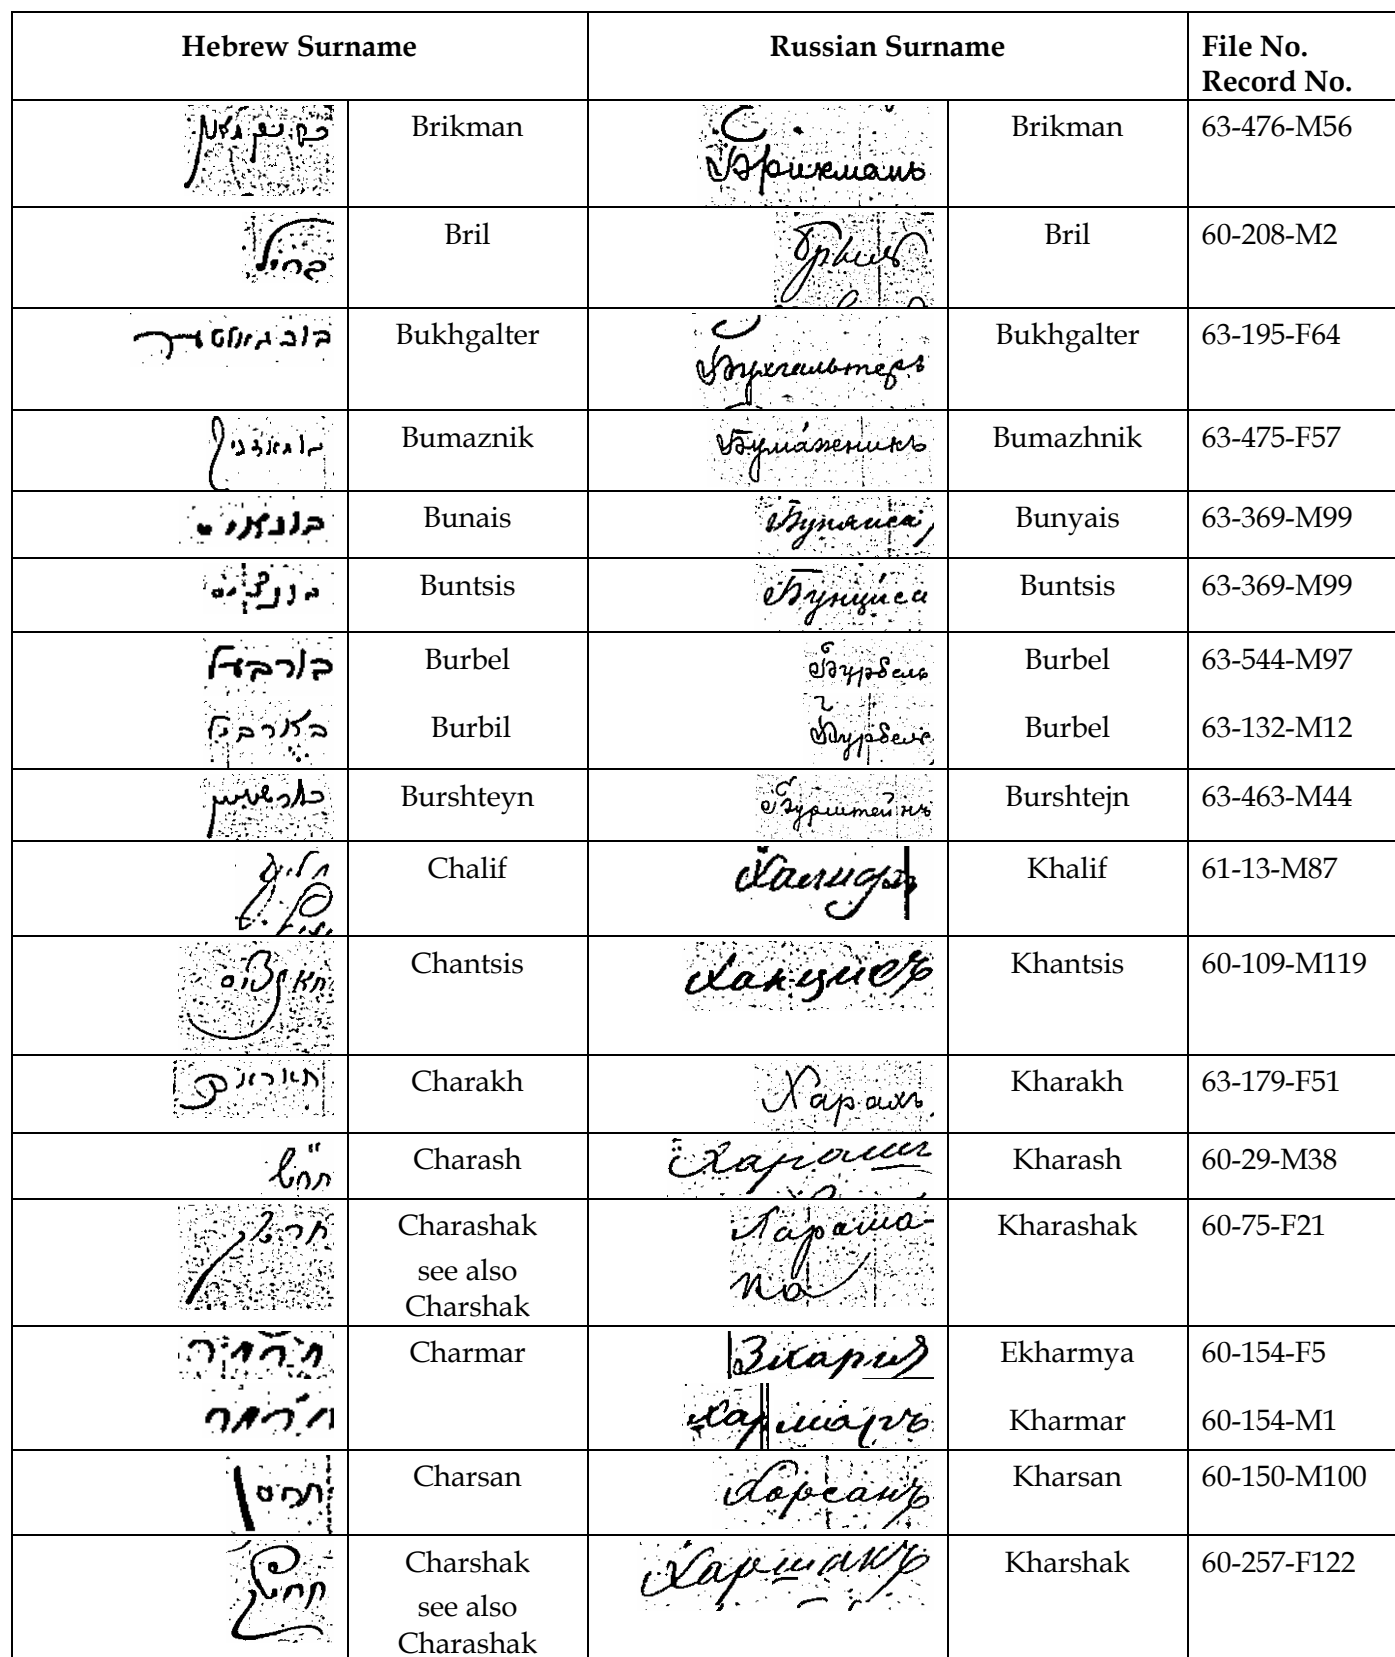 Hebrew Surname Russian Surname File No. Record No.
בריקמאן Brikman Брикманъ Brikman 63-476-M56
בריל Bril Бриль Bril 60-208-M2
בוכגאלטער Bukhgalter Бухгальтеръ Bukhgalter 63-195-F64
Bumaznik Бумаженикъ Bumazhnik 63-475-F57
בונאיס Bunais Буняиса Bunyais 63-369-M99
בונציס Buntsis Бунциса Buntsis 63-369-M99
בורבעל Burbel Бурбель Burbel 63-544-M97
בארביל Burbil Бурбель Burbel 63-132-M12
Burshteyn Бурштейнъ Burshtejn 63-463-M44
חליף Chalif Халифъ Khalif 61-13-M87
חאנציס Chantsis Ханцисъ Khantsis 60-109-M119
Charakh Харахъ Kharakh 63-179-F51
חרש Charash Харашъ Kharash 60-29-M38
חרשק Charashak Хараша-
see also
Charshak
ка Kharashak 60-75-F21
Charmar Ekharmya 60-154-F5
חרמר Хармаръ Kharmar 60-154-M1
חרסן Charsan Харсанъ Kharsan 60-150-M100
חרשק Charshak Харшакъ Kharshak 60-257-F122
see also
Charashak